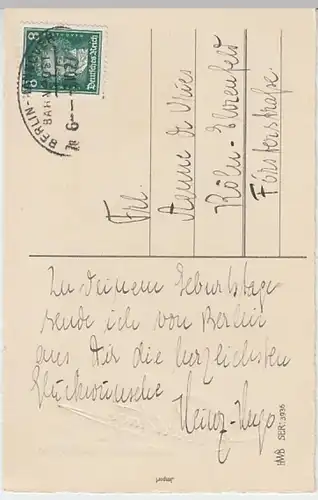 Deutsches Reich
8 8
BERLIN
BAHN
Frl.
Aenne de Vries
Köln-Ehrenfeld
Försterstraße.
Zu Deinem Geburtstage
sende ich von Berlin
aus Dir die herzlichsten
Glückwünsche
Heinz-Hugo
HWB SER: 3936
Import